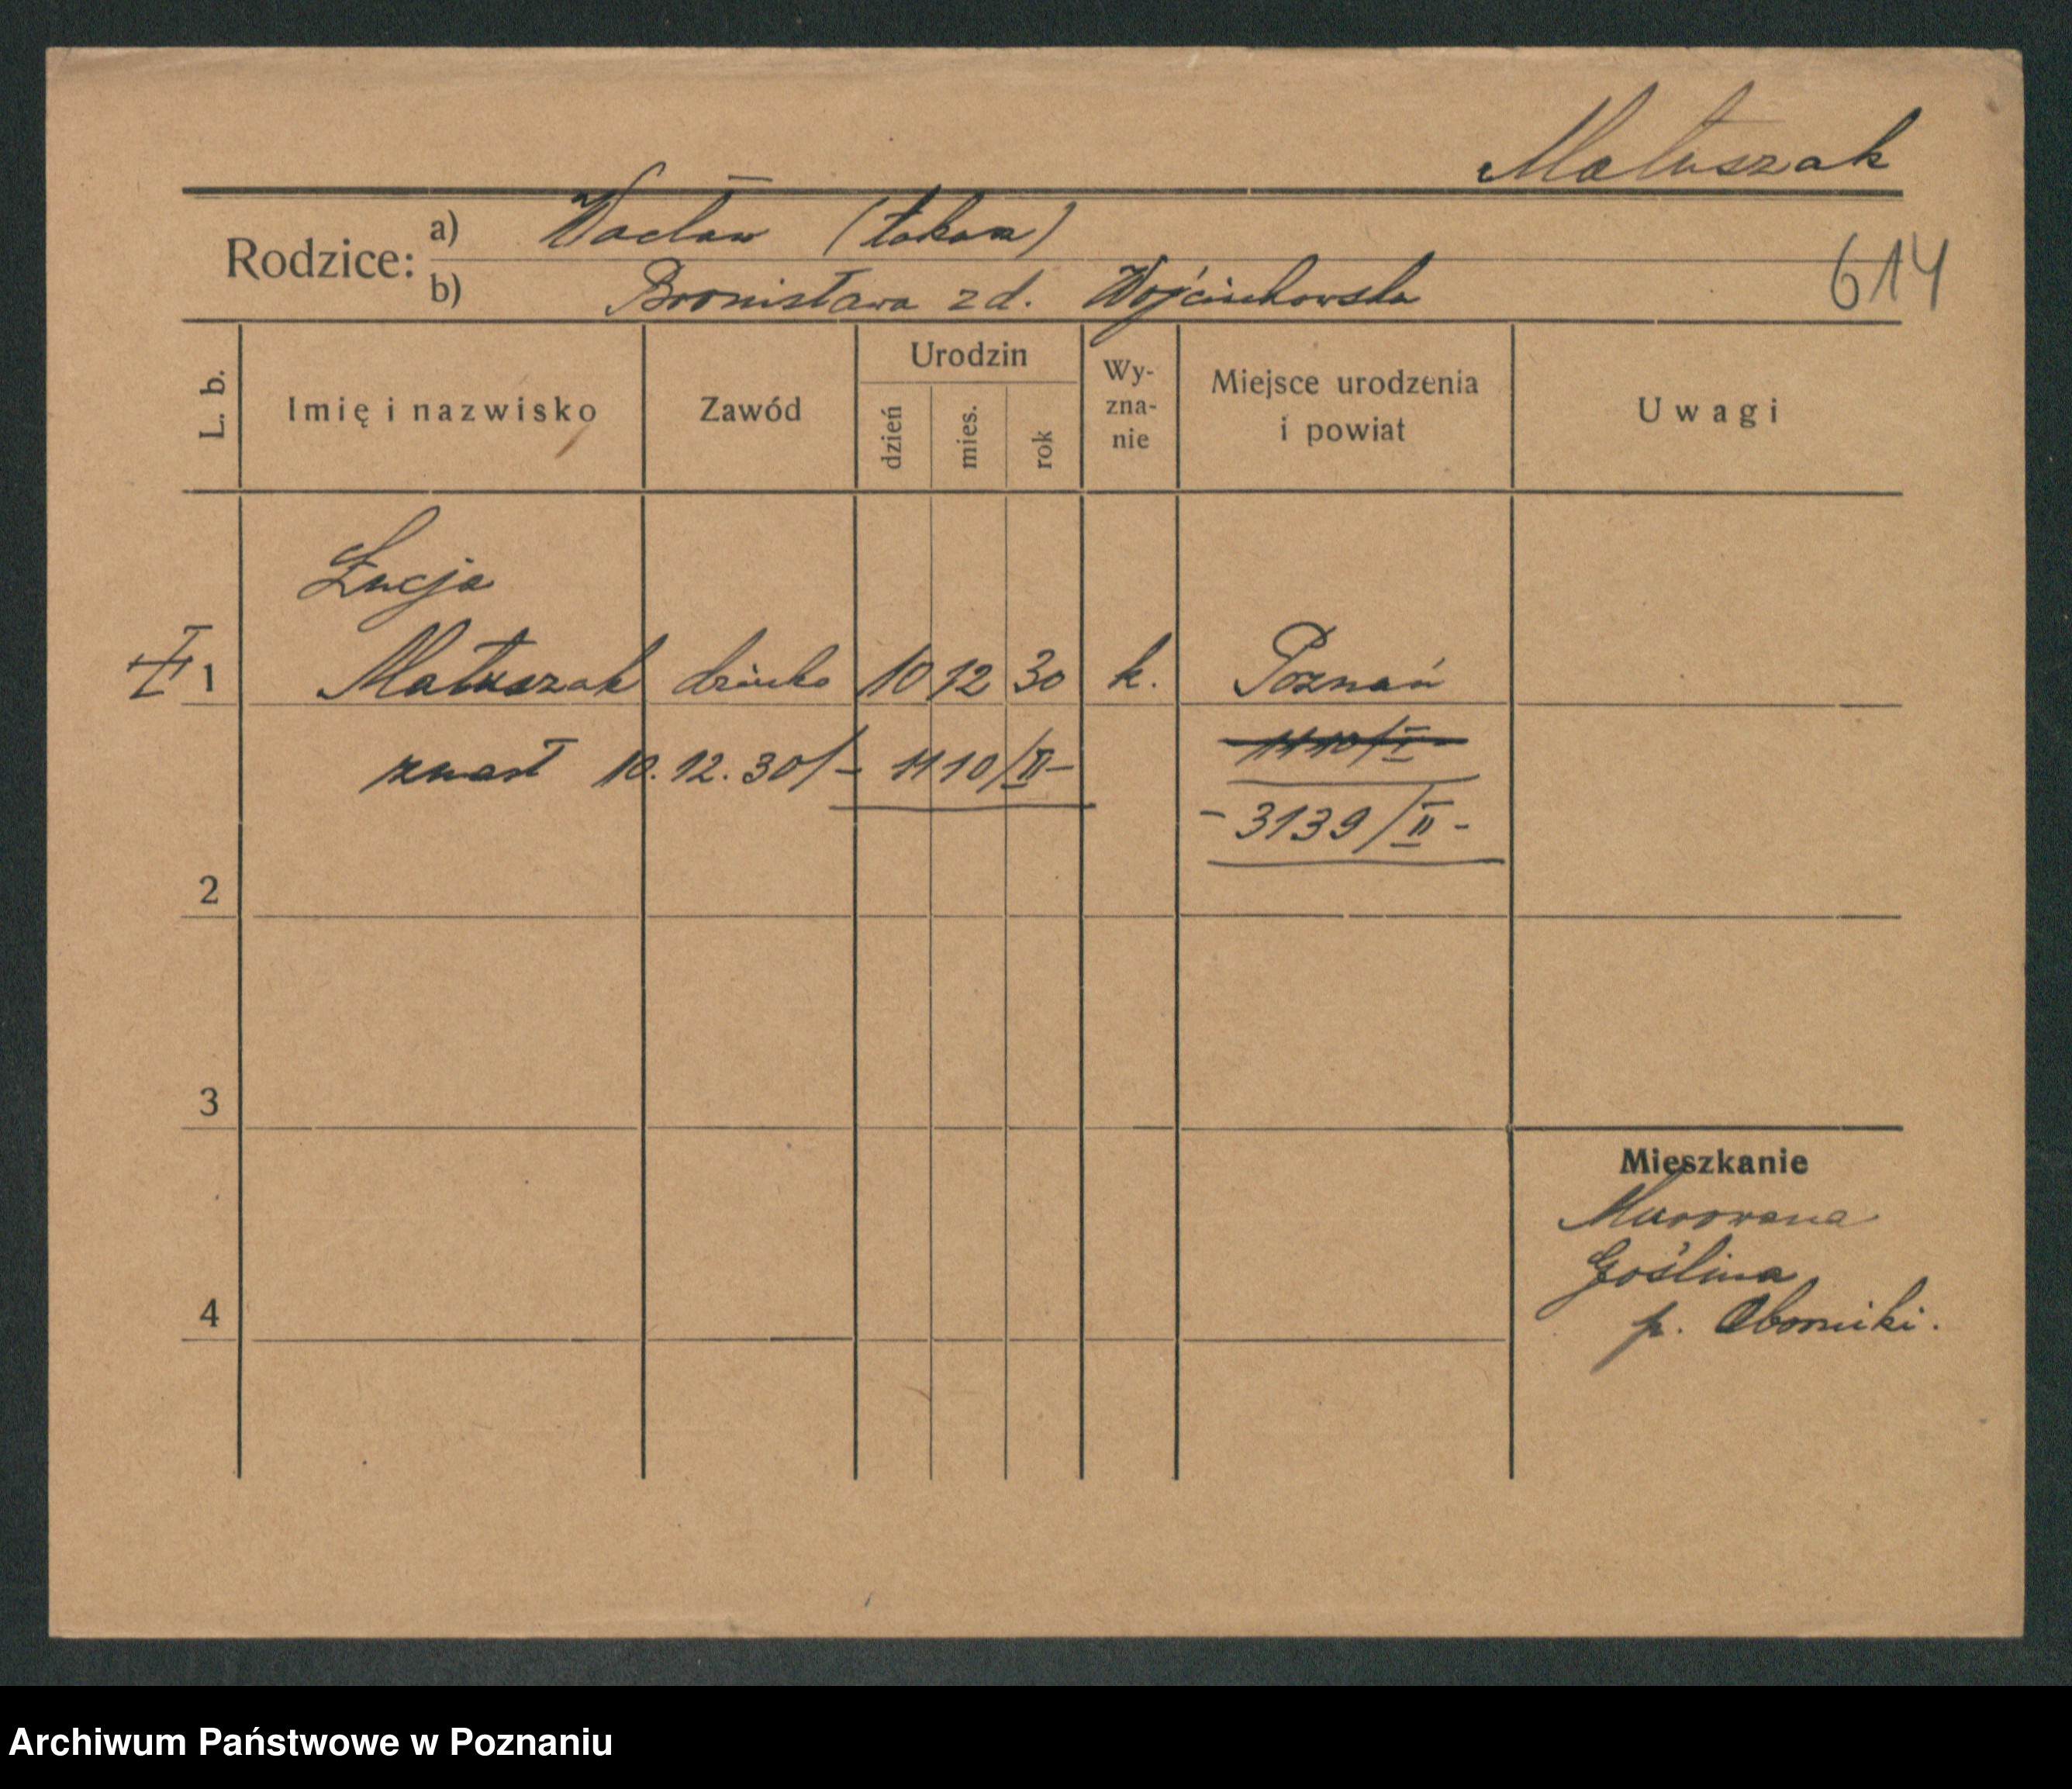 Matuszak
Rodzice:
a) Wacław (tokarz)
b) Bronisława zd. Wojciechowska
614
L. b.
Imię i nazwisko
Zawód
Urodzin
dzień
mies.
rok
Wy-
zna-
nie
Miejsce urodzenia
i powiat
Uwagi
Łucja
1 Matuszak dziecko 10 12 30 k. Poznań
zmarł 10.12.30/- 1110/II-
1110/II-
-3139/II-
2
3
4
Mieszkanie
Murowana
Goślina
p. Oborniki.
Archiwum Państwowe w Poznaniu